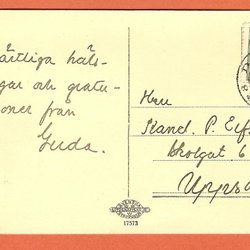 ärtliga häls-
gar och gratu-
oner från
Guda.
Herr
Kand. P. Elf
Skolgat. 6
Upps
17573